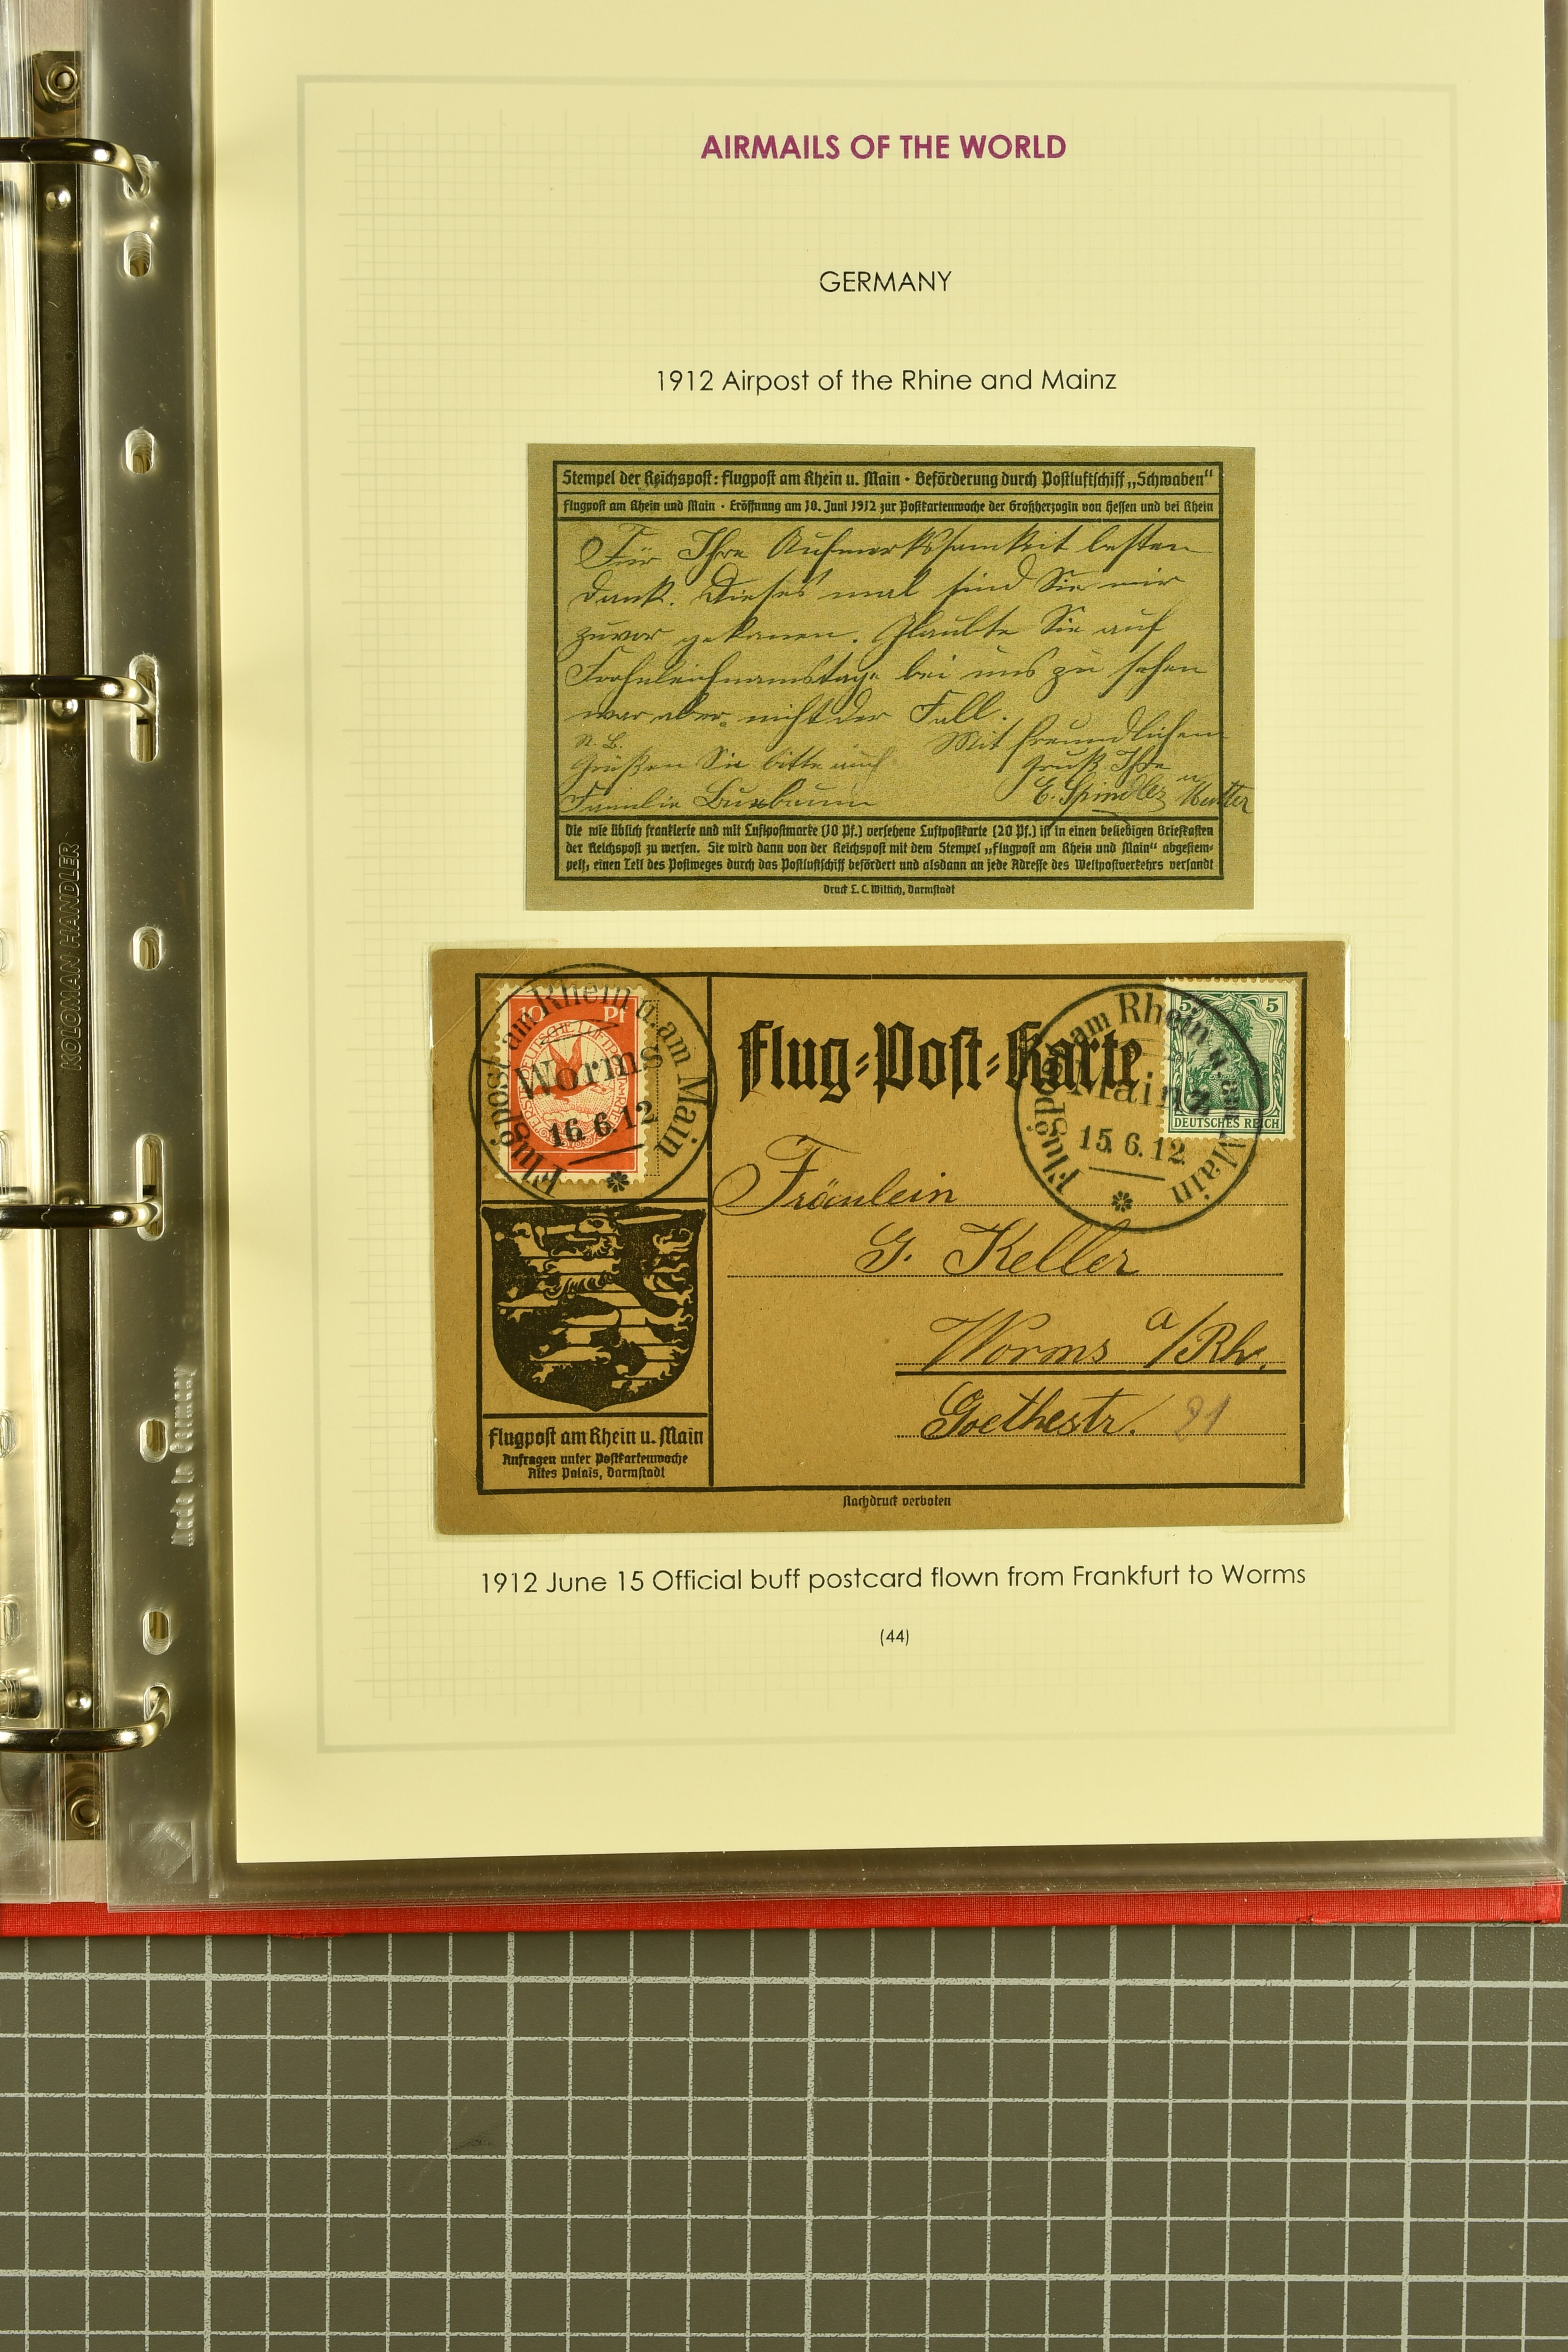 AIRMAILS OF THE WORLD
GERMANY
1912 Airpost of the Rhine and Mainz
Stempel der Reichspost: Flugpost am Rhein u. Main · Beförderung durch Postluftschiff „Schwaben“
Flugpost am Rhein und Main · Eröffnung am 10. Juni 1912 zur Postkartenwoche der Großherzogin von Hessen und bei Rhein
Für Ihre Aufmerksamkeit besten
Dank. Dieses mal sind Sie mir
zuvor gekomen. Glaubte Sie auf
Frohnleichnamstage bei uns zu sehen
war aber nicht der Fall.
N. B.
Mit freundlichem
Grüßen Sie bitte auch
Gruß Ihre
Familie Buxbaum
E. Spindler u Mutter
Die wie üblich frankierte und mit Luftpostmarke (10 Pf.) versehene Luftpostkarte (20 Pf.) ist in einen beliebigen Briefkasten
der Reichspost zu werfen. Sie wird dann von der Reichspost mit dem Stempel „Flugpost am Rhein und Main“ abgestem-
pelt, einen Teil des Postweges durch das Postluftschiff befördert und alsdann an jede Adresse des Weltpostverkehrs versandt
Druck L. C. Wittich, Darmstadt
10 Pf
Flugpost am Rhein u. am Main
Worms
16.6.12
Flug-Post-Karte
5 5
DEUTSCHES REICH
Flugpost am Rhein u. am Main
Mainz
15.6.12
Fräulein
G. Keller
Worms a/Rh.
Goethestr. 21
Flugpost am Rhein u. Main
Anfragen unter Postkartenwoche
Altes Palais, Darmstadt
Nachdruck verboten
1912 June 15 Official buff postcard flown from Frankfurt to Worms
(44)
KOLOMAN HANDLER
Made in Germany